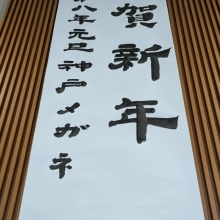 賀新年
八年元旦神戸メガネ